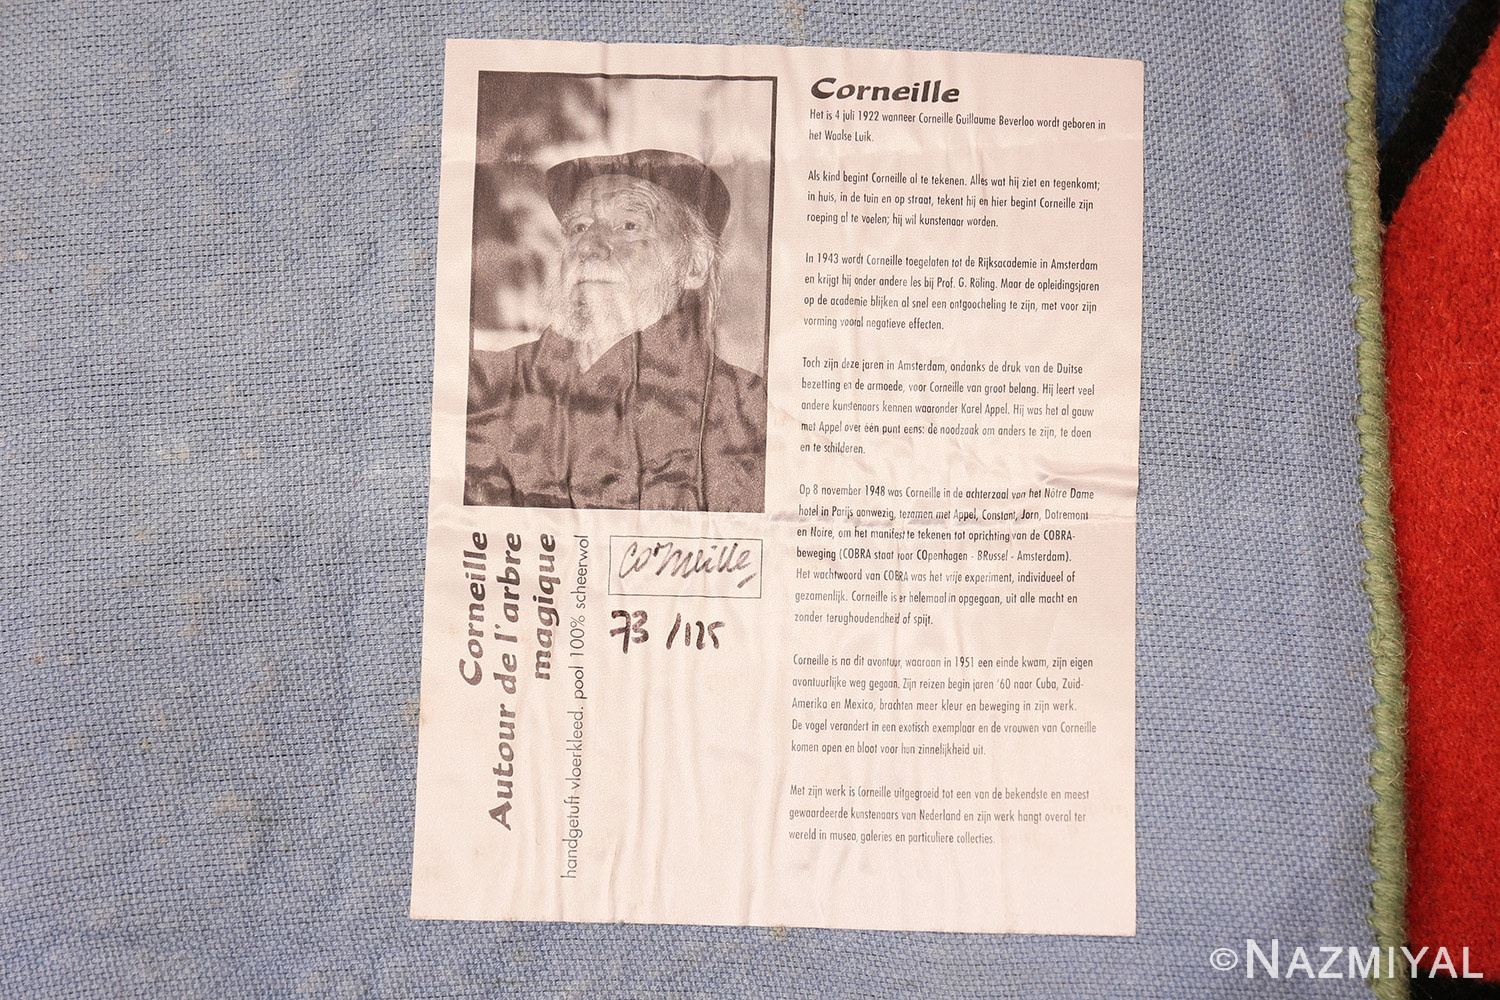 Corneille
Het is 4 juli 1922 wanneer Corneille Guillaume Beverloo wordt geboren in
het Waalse Luik.
Als kind begint Corneille al te tekenen. Alles wat hij ziet en tegenkomt;
in huis, in de tuin en op straat, tekent hij en hier begint Corneille zijn
roeping al te voelen; hij wil kunstenaar worden.
In 1943 wordt Corneille toegelaten tot de Rijksacademie in Amsterdam
en krijgt hij onder andere les bij Prof. G. Röling. Maar de opleidingsjaren
op de academie blijken al snel een ontgoocheling te zijn, met voor zijn
vorming vooral negatieve effecten.
Toch zijn deze jaren in Amsterdam, ondanks de druk van de Duitse
bezetting en de armoede, voor Corneille van groot belang. Hij leert veel
andere kunstenaars kennen waaronder Karel Appel. Hij was het al gauw
met Appel over één punt eens: de noodzaak om anders te zijn, te doen
en te schilderen.
Op 8 november 1948 was Corneille in de achterzaal van het Nôtre Dame
hotel in Parijs aanwezig, tezamen met Appel, Constant, Jorn, Dotremont
en Noire, om het manifest te tekenen tot oprichting van de COBRA-
beweging (COBRA staat voor COpenhagen - BRussel - Amsterdam).
Het wachtwoord van COBRA was het vrije experiment, individueel of
gezamenlijk. Corneille is er helemaal in opgegaan, uit alle macht en
zonder terughoudendheid of spijt.
Corneille is na dit avontuur, waaraan in 1951 een einde kwam, zijn eigen
avontuurlijke weg gegaan. Zijn reizen begin jaren '60 naar Cuba, Zuid-
Amerika en Mexico, brachten meer kleur en beweging in zijn werk.
De vogel verandert in een exotisch exemplaar en de vrouwen van Corneille
komen open en bloot voor hun zinnelijkheid uit.
Met zijn werk is Corneille uitgegroeid tot een van de bekendste en meest
gewaardeerde kunstenaars van Nederland en zijn werk hangt overal ter
wereld in musea, galeries en particuliere collecties.
Corneille
Autour de l'arbre
magique
handgetuft vloerkleed. pool 100% scheerwol
Corneille
73 / 125
© NAZMIYAL